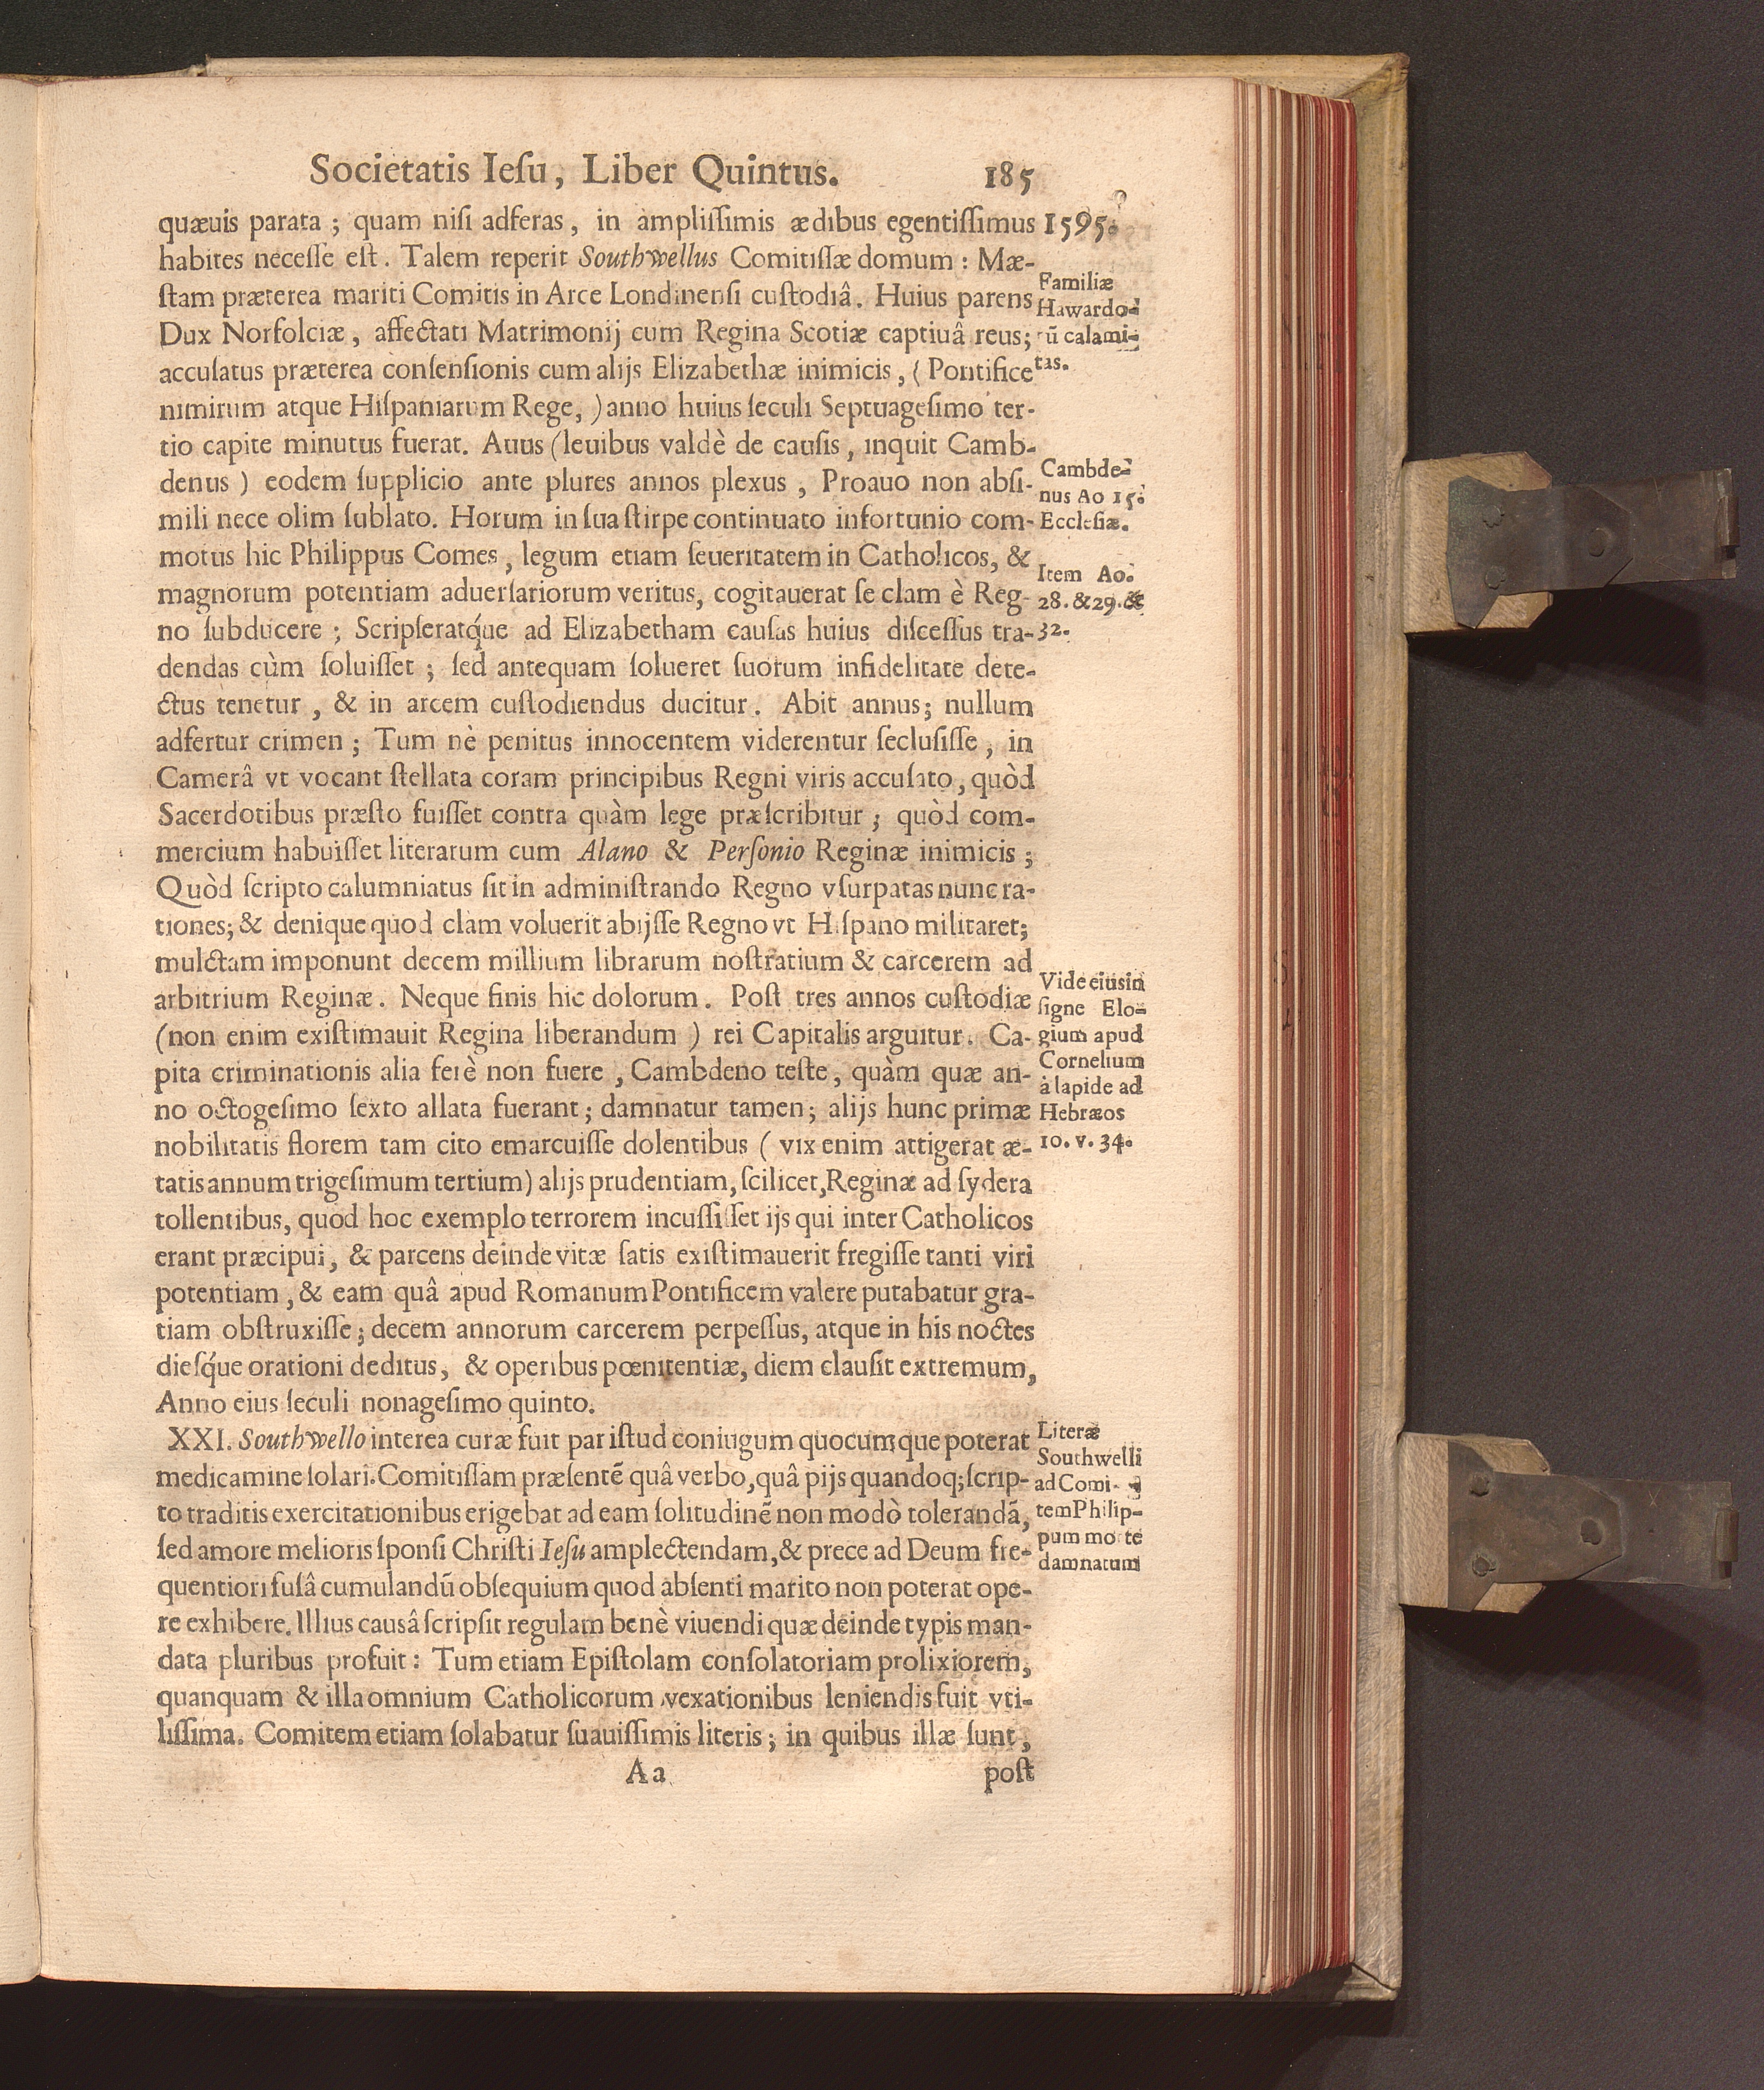 Societatis Ieſu, Liber Quintus. 185
quæuis parata ; quam niſi adferas, in ampliſſimis ædibus egentiſſimus
habites neceſſe eſt. Talem reperit Southwellus Comitiſſæ domum : Mæ-
ſtam præterea mariti Comitis in Arce Londinenſi cuſtodiâ. Huius parens
Dux Norfolciæ, affectati Matrimonij cum Regina Scotiæ captiuâ reus;
accuſatus præterea conſenſionis cum alijs Elizabethæ inimicis, (Pontifice
nimirum atque Hiſpaniarum Rege,) anno huius ſeculi Septuageſimo ter-
tio capite minutus fuerat. Auus (leuibus valdè de cauſis, inquit Camb-
denus) eodem ſupplicio ante plures annos plexus, Proauo non abſi-
mili nece olim ſublato. Horum in ſua ſtirpe continuato infortunio com-
motus hic Philippus Comes, legum etiam ſeueritatem in Catholicos, &
magnorum potentiam aduerſariorum veritus, cogitauerat ſe clam è Reg-
no ſubducere ; Scripſeratq́ue ad Elizabetham cauſas huius diſceſſus tra-
dendas cùm ſoluiſſet ; ſed antequam ſolueret ſuorum infidelitate dete-
ctus tenetur, & in arcem cuſtodiendus ducitur. Abit annus; nullum
adfertur crimen ; Tum nè penitus innocentem viderentur ſecluſiſſe, in
Camerâ vt vocant ſtellata coram principibus Regni viris accuſato, quòd
Sacerdotibus præſto fuiſſet contra quàm lege præſcribitur ; quòd com-
mercium habuiſſet literarum cum Alano & Perſonio Reginæ inimicis ;
Quòd ſcripto calumniatus ſit in adminiſtrando Regno vſurpatas nunc ra-
tiones; & denique quod clam voluerit abijſſe Regno vt Hiſpano militaret;
mulctam imponunt decem millium librarum noſtratium & carcerem ad
arbitrium Reginæ. Neque finis hic dolorum. Poſt tres annos cuſtodiæ
(non enim exiſtimauit Regina liberandum) rei Capitalis arguitur. Ca-
pita criminationis alia ferè non fuere, Cambdeno teſte, quàm quæ an-
no octogeſimo ſexto allata fuerant ; damnatur tamen; alijs hunc primæ
nobilitatis florem tam cito emarcuiſſe dolentibus (vix enim attigerat æ-
tatis annum trigeſimum tertium) alijs prudentiam, ſcilicet, Reginæ ad ſydera
tollentibus, quod hoc exemplo terrorem incuſſiſſet ijs qui inter Catholicos
erant præcipui, & parcens deinde vitæ ſatis exiſtimauerit fregiſſe tanti viri
potentiam, & eam quâ apud Romanum Pontificem valere putabatur gra-
tiam obſtruxiſſe; decem annorum carcerem perpeſſus, atque in his noctes
dieſq́ue orationi deditus, & operibus pœnitentiæ, diem clauſit extremum,
Anno eius ſeculi nonageſimo quinto.
XXI. Southwello interea curæ fuit par iſtud coniugum quocumque poterat
medicamine ſolari. Comitiſſam præſentē quâ verbo, quâ pijs quandoq; ſcrip-
to traditis exercitationibus erigebat ad eam ſolitudinē non modò tolerandā,
ſed amore melioris ſponſi Chriſti Ieſu amplectendam, & prece ad Deum fre-
quentiori fuſâ cumulandū obſequium quod abſenti marito non poterat ope-
re exhibere. Illius causâ ſcripſit regulam benè viuendi quæ deinde typis man-
data pluribus profuit : Tum etiam Epiſtolam conſolatoriam prolixiorem,
quanquam & illa omnium Catholicorum vexationibus leniendis fuit vti-
liſſima. Comitem etiam ſolabatur ſuauiſſimis literis ; in quibus illæ ſunt,
Aa poſt
1595.
Familiæ
Hawardo-
rū calami-
tas.
Cambde-
nus Ao 15.
Eccleſiæ.
Item Ao.
28. & 29. &
32.
Vide eius in
ſigne Elo-
gium apud
Cornelium
à lapide ad
Hebræos
10. v. 34.
Literæ
Southwelli
ad Comi-
tem Philip-
pum morte
damnatum